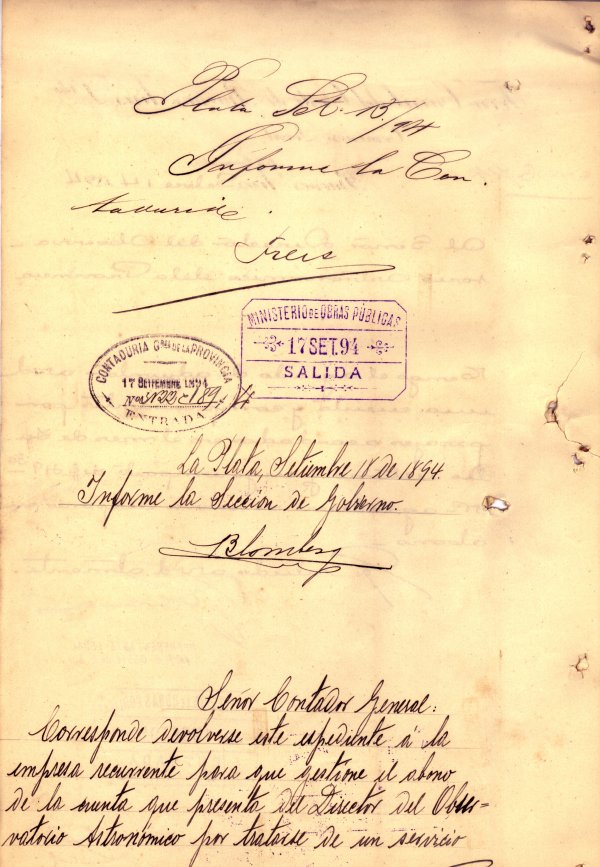 Plata Set. 15/94
Informe la Con-
taduria.
Freis
MINISTERIO DE OBRAS PÚBLICAS
17 SET. 94
SALIDA
CONTADURIA GRAL DE LA PROVINCIA
17 SETIEMBRE 1894
ENTRADA
La Plata, Setumbre 18 de 1894.
Informe la Seccion de Gobierno.
Blomberg
Señor Contador General:
Corresponde devolverse este espediente á la
empresa recurrente para que gestione el abono
de la cuenta que presenta del Director del Obser-
vatorio Astronómico por tratarse de un servicio